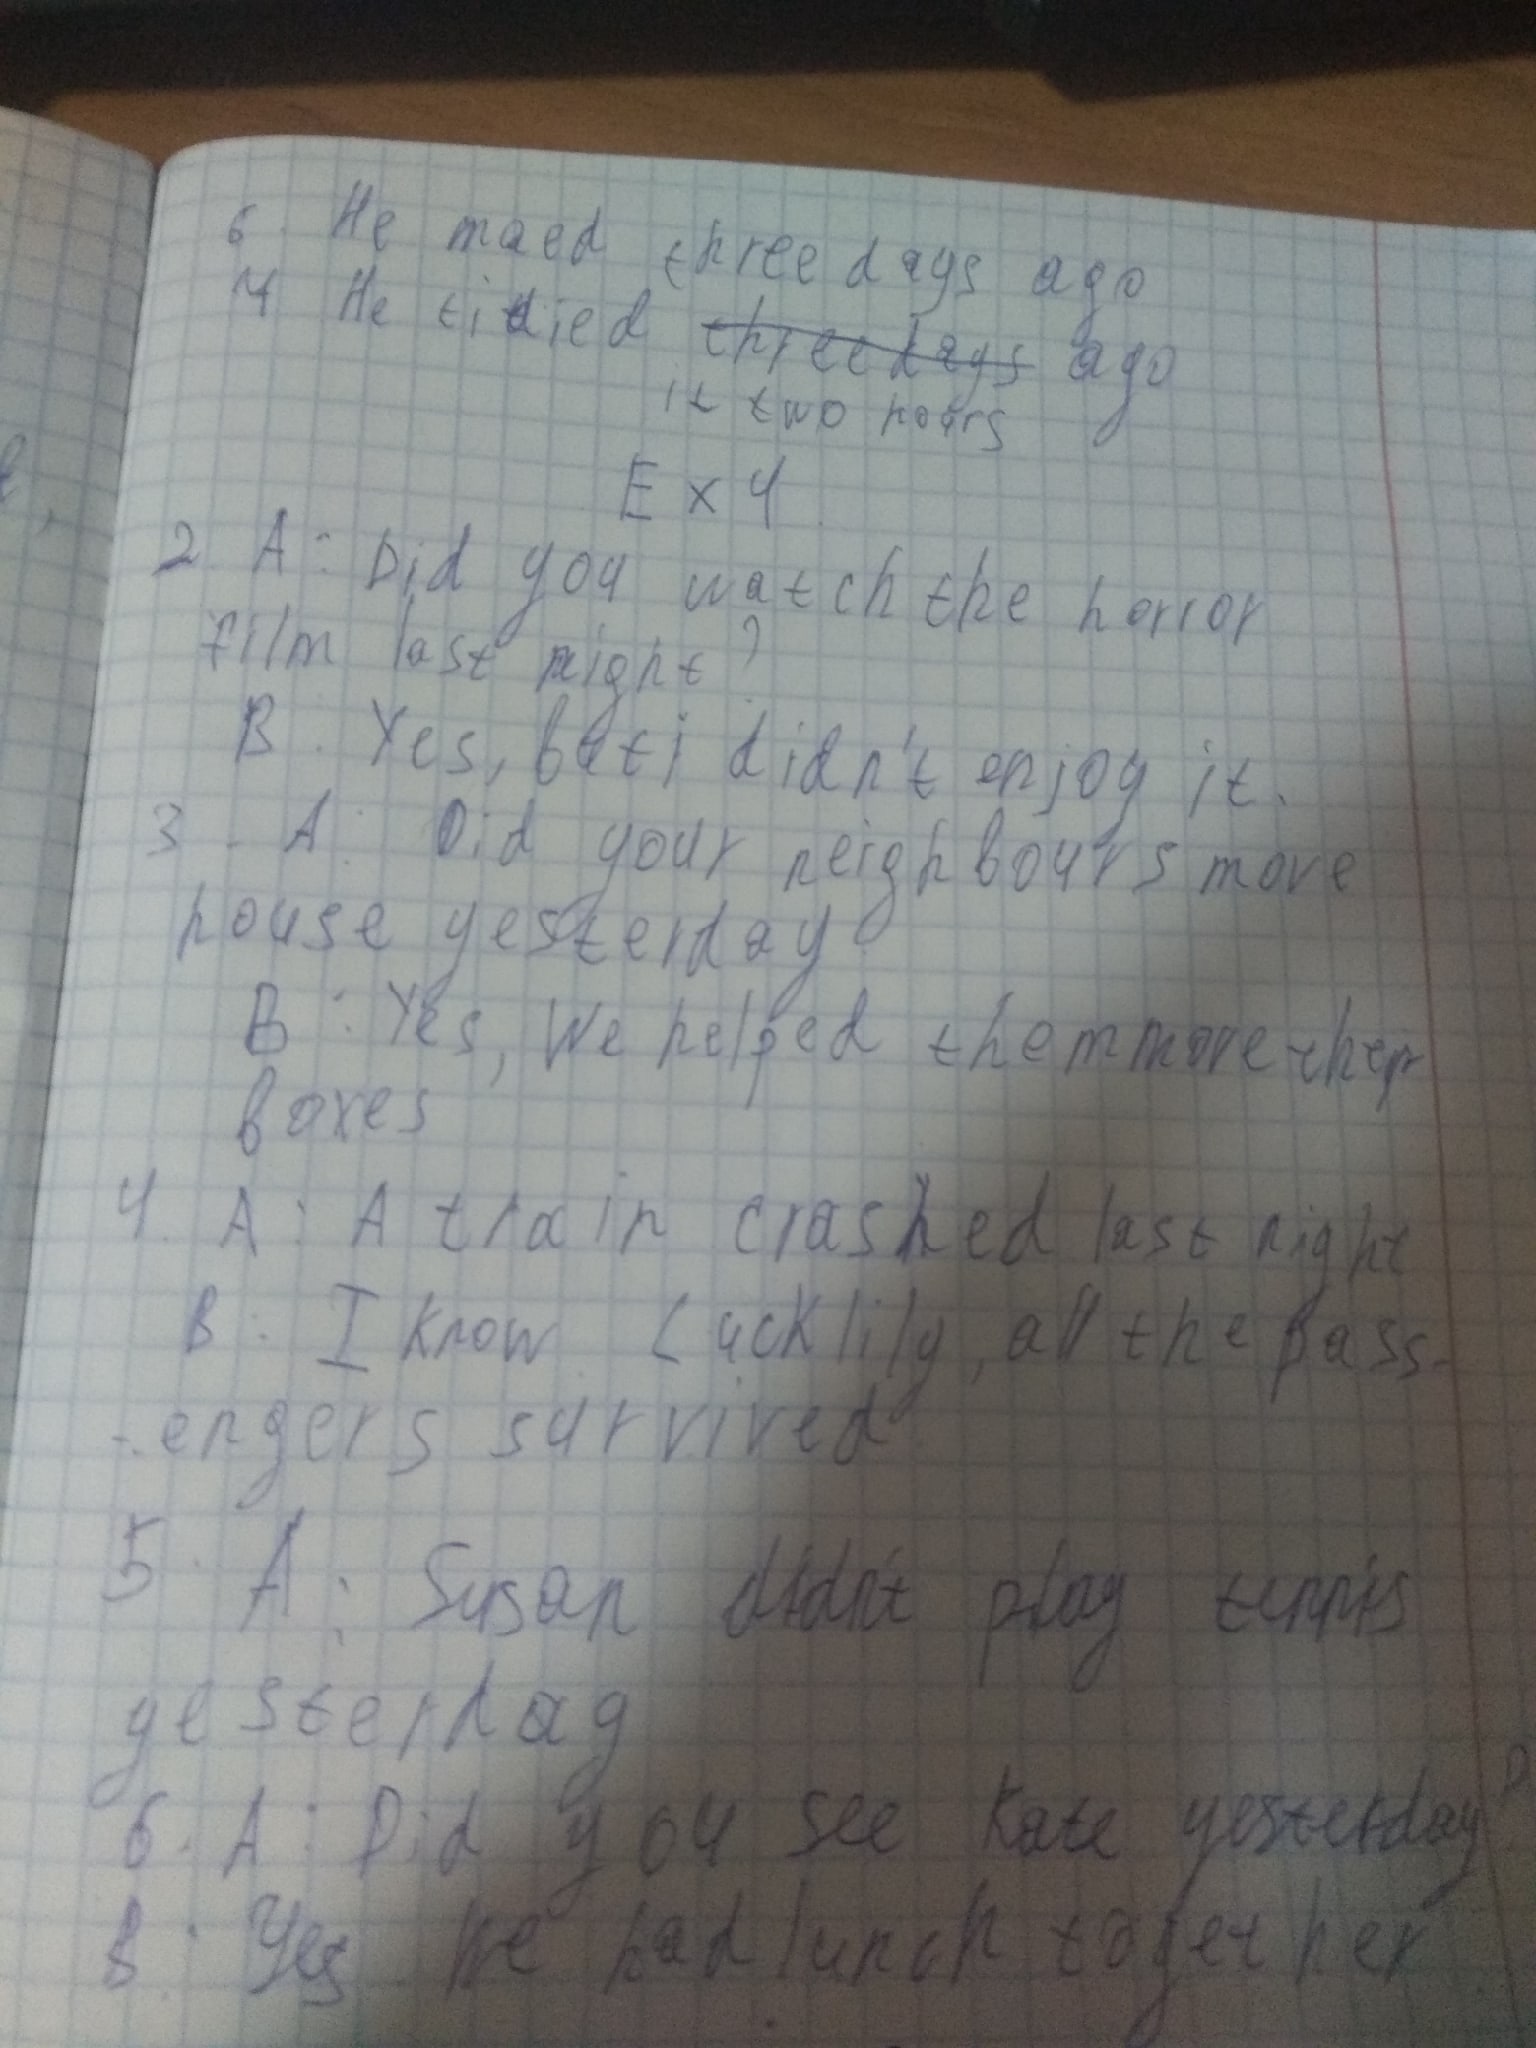 6. He maed three days ago
7 He tidied three days ago
it two hours
Ex 4
2. A: Did you watch the horror
film last night?
B: Yes, but i didn't enjoy it.
3. A: Did your neighbours move
house yesterday?
B: Yes, We helped them move their
boxes
4. A: A train crashed last night
B: I know. Lucklily, all the pass-
-engers survived
5. A: Susan didn't play tennis
yesterday
6. A: Did you see Kate yesterday?
B: Yes We had lunch together